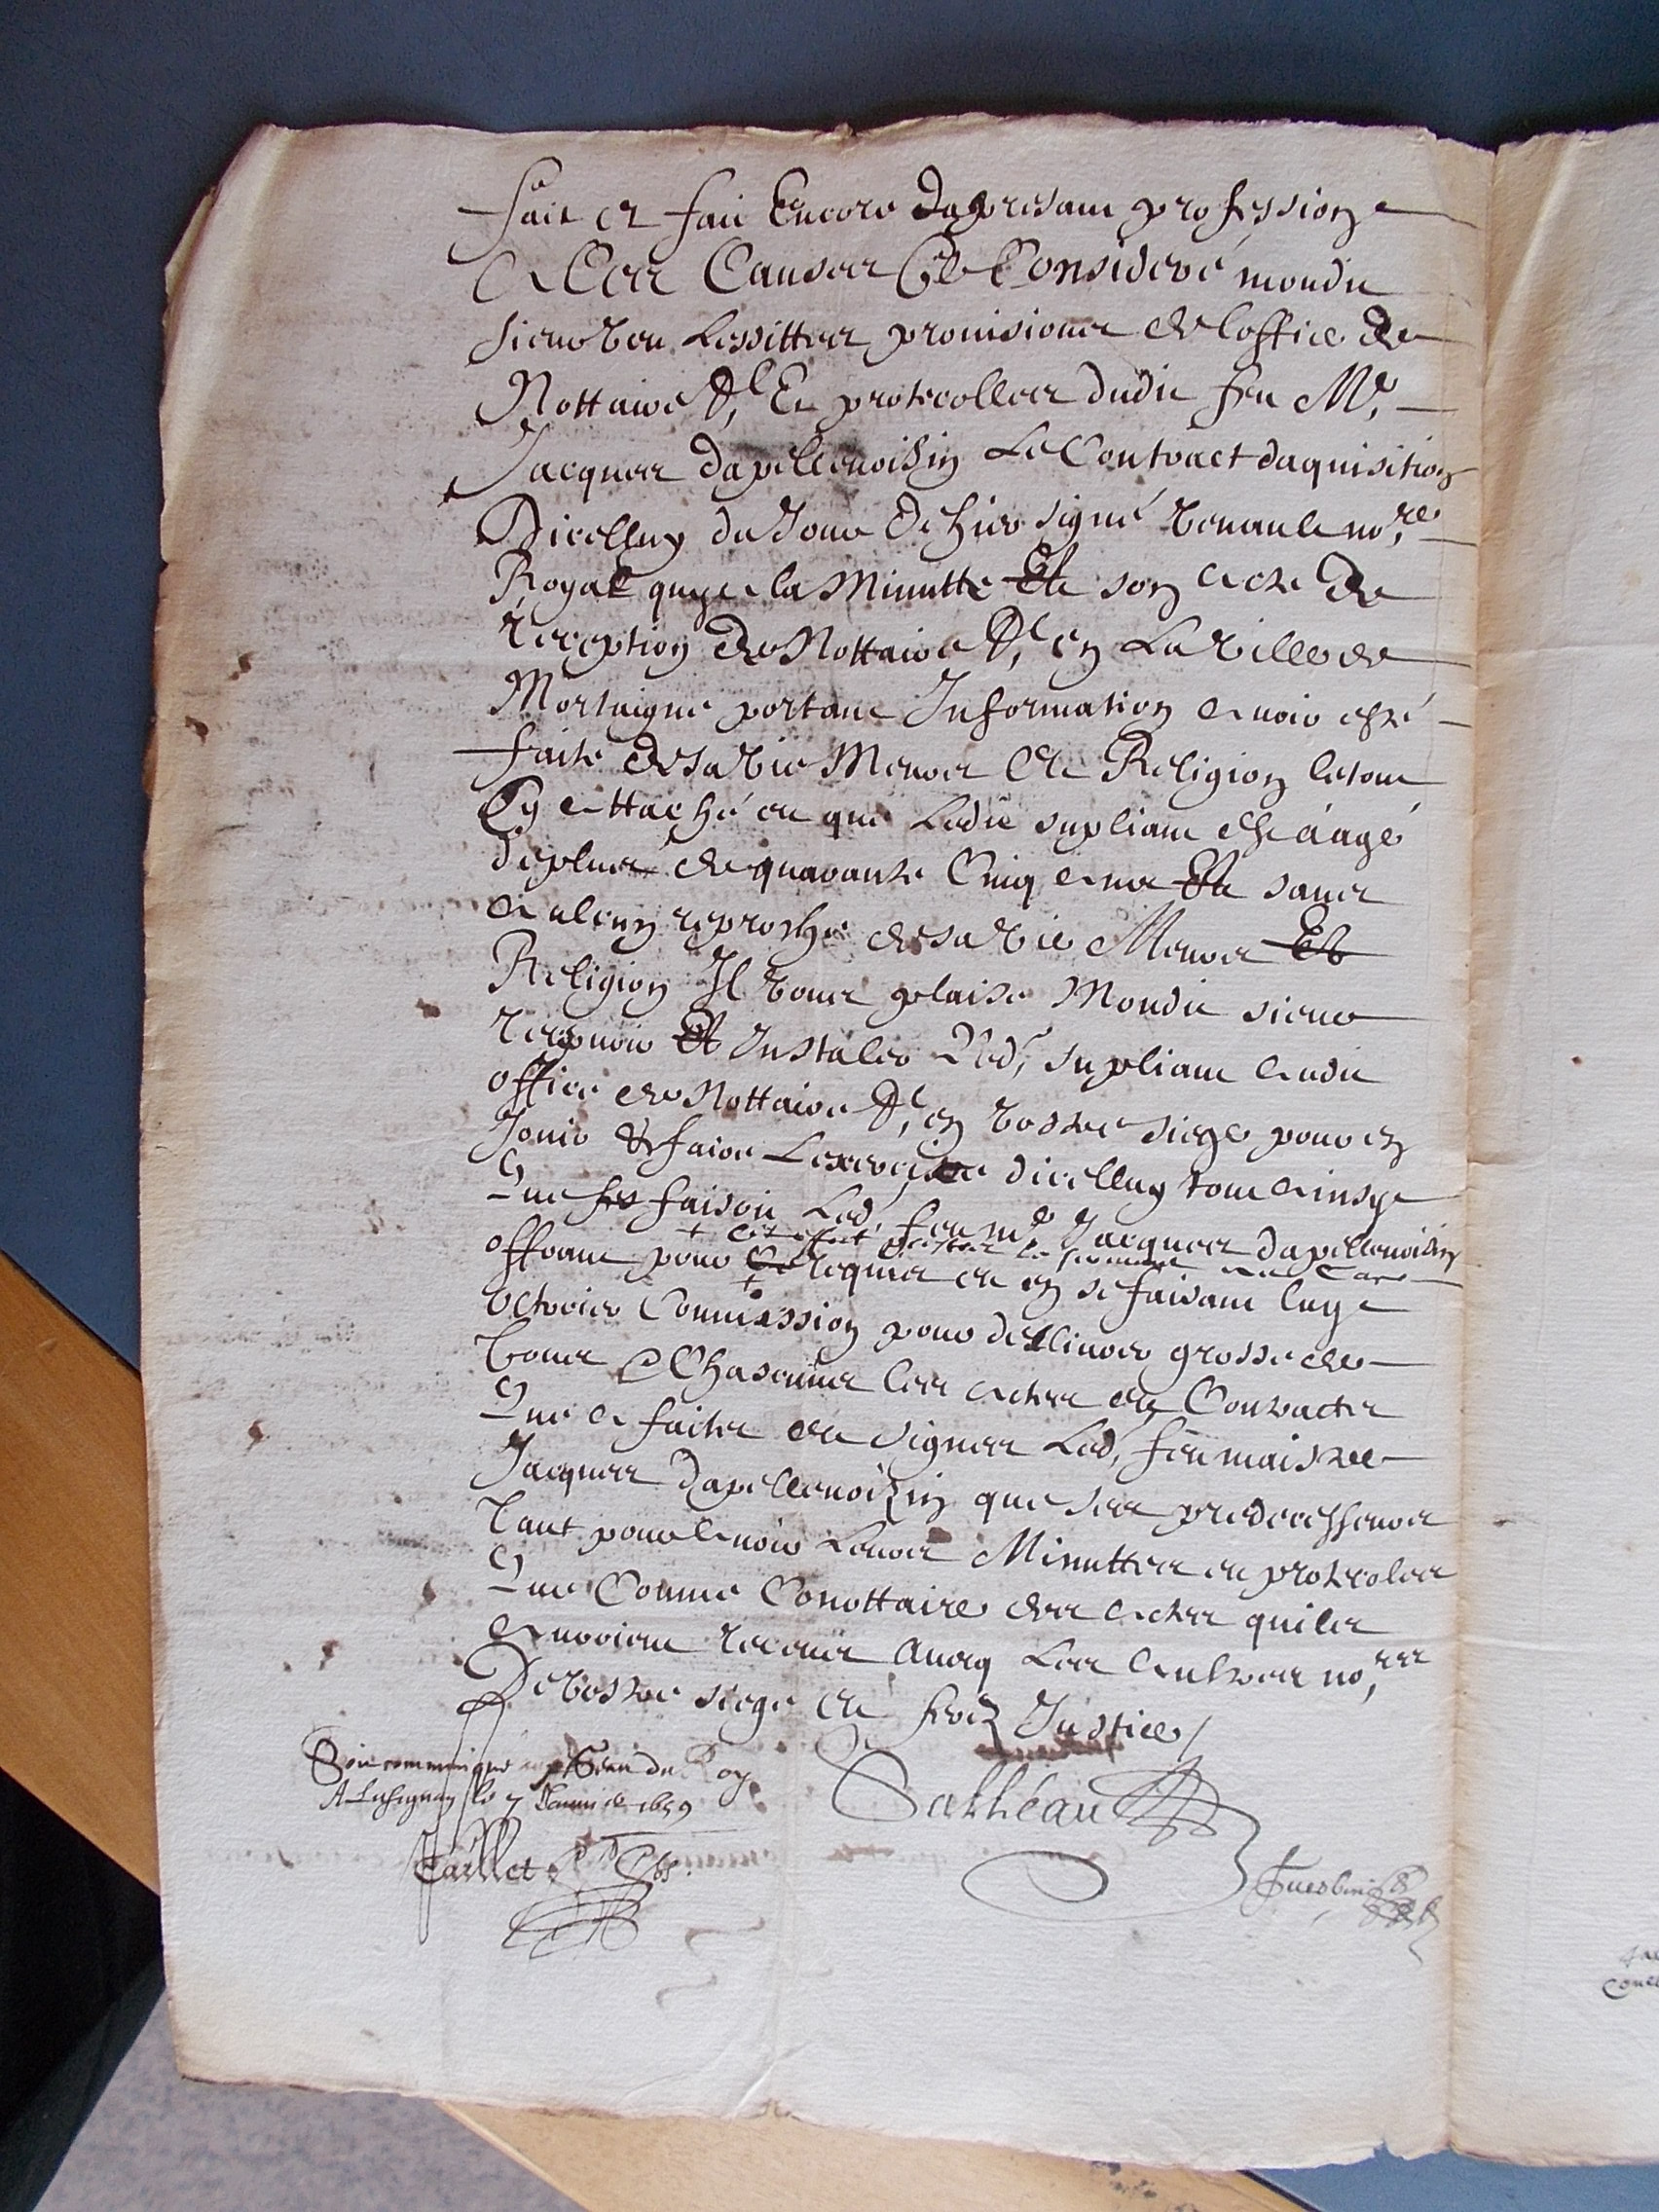 fait et fait Encore dapresant profession
A Ces Causes Ce Consideré mondit
sieur veu Les lettres provisions de loffice de
Nottaire Rl Et protecolles dudit feu Me
Jacques dapellevoisin Le Contract daquisition
Dicelluy du Jour de hier signé Renault nore
Royal quy a la Minutte Et son acte de
reception de Nottaire Rl en La ville de
Mortaigne portant Information avoir esté
faite de sa vie Meurs Et Religion le tout
Cy attaché et que Ledit supliant est áagé
de plus de quarante Cinq ans Et sans
aulcun reproche de sa vie Meurs Et
Religion Il vous plaise Mondit sieur
recepvoir Et Instaler Led. supliant audit
office de Nottaire Rl en vostre siege pour en
Jouir & faire Lexercice dicelluy tout ainsy
Que faisoit Led. feu Me Jacques dapellevoisin
+ cet effect prester le serment
offrant pour requis et en se faisant luy
octroier Commission pour dellivrer grosse de
tous Chascuns les actes et Contractz
Que a faitz et signes Led. feu maistre
Jacques dapellevoizin que ses predecesseurs
tant pour avoir Leurs Minuttes et protecoles
Que Comme Conottaire des actes quils
auroient receus avecq Les aultres nores
De vostre siege Et ferez Justice /
Soit communiqué au procureur du Roy
A Lusignan le 7 Janvier 1659
Saltheau